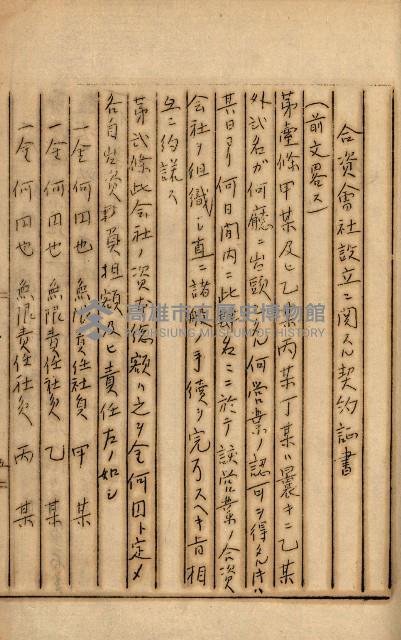 合資會社設立ニ関スル契約証書
(前文畧ス)
第壹條甲某及ヒ乙某丙某丁某ハ曩キニ乙某
外弍名ガ何廳ニ出頭シ何営業ノ認可ヲ得タルトキハ
其日ヨリ何日間内ニ此四名ニ於テ該営業ノ合資
会社ヲ組織シ直ニ諸般ノ手續ヲ完了スヘキ旨相
互ニ約諾ス
第弍條此会社ノ資本総額ハ之ヲ金何円ト定メ
各自出資ノ負担額及ヒ責任左ノ如シ
一金何円也 無限責任社員 甲某
一金何円也 無限責任社員 乙某
一金何円也 無限責任社員 丙某
高雄市立歷史博物館
KAOHSIUNG MUSEUM OF HISTORY